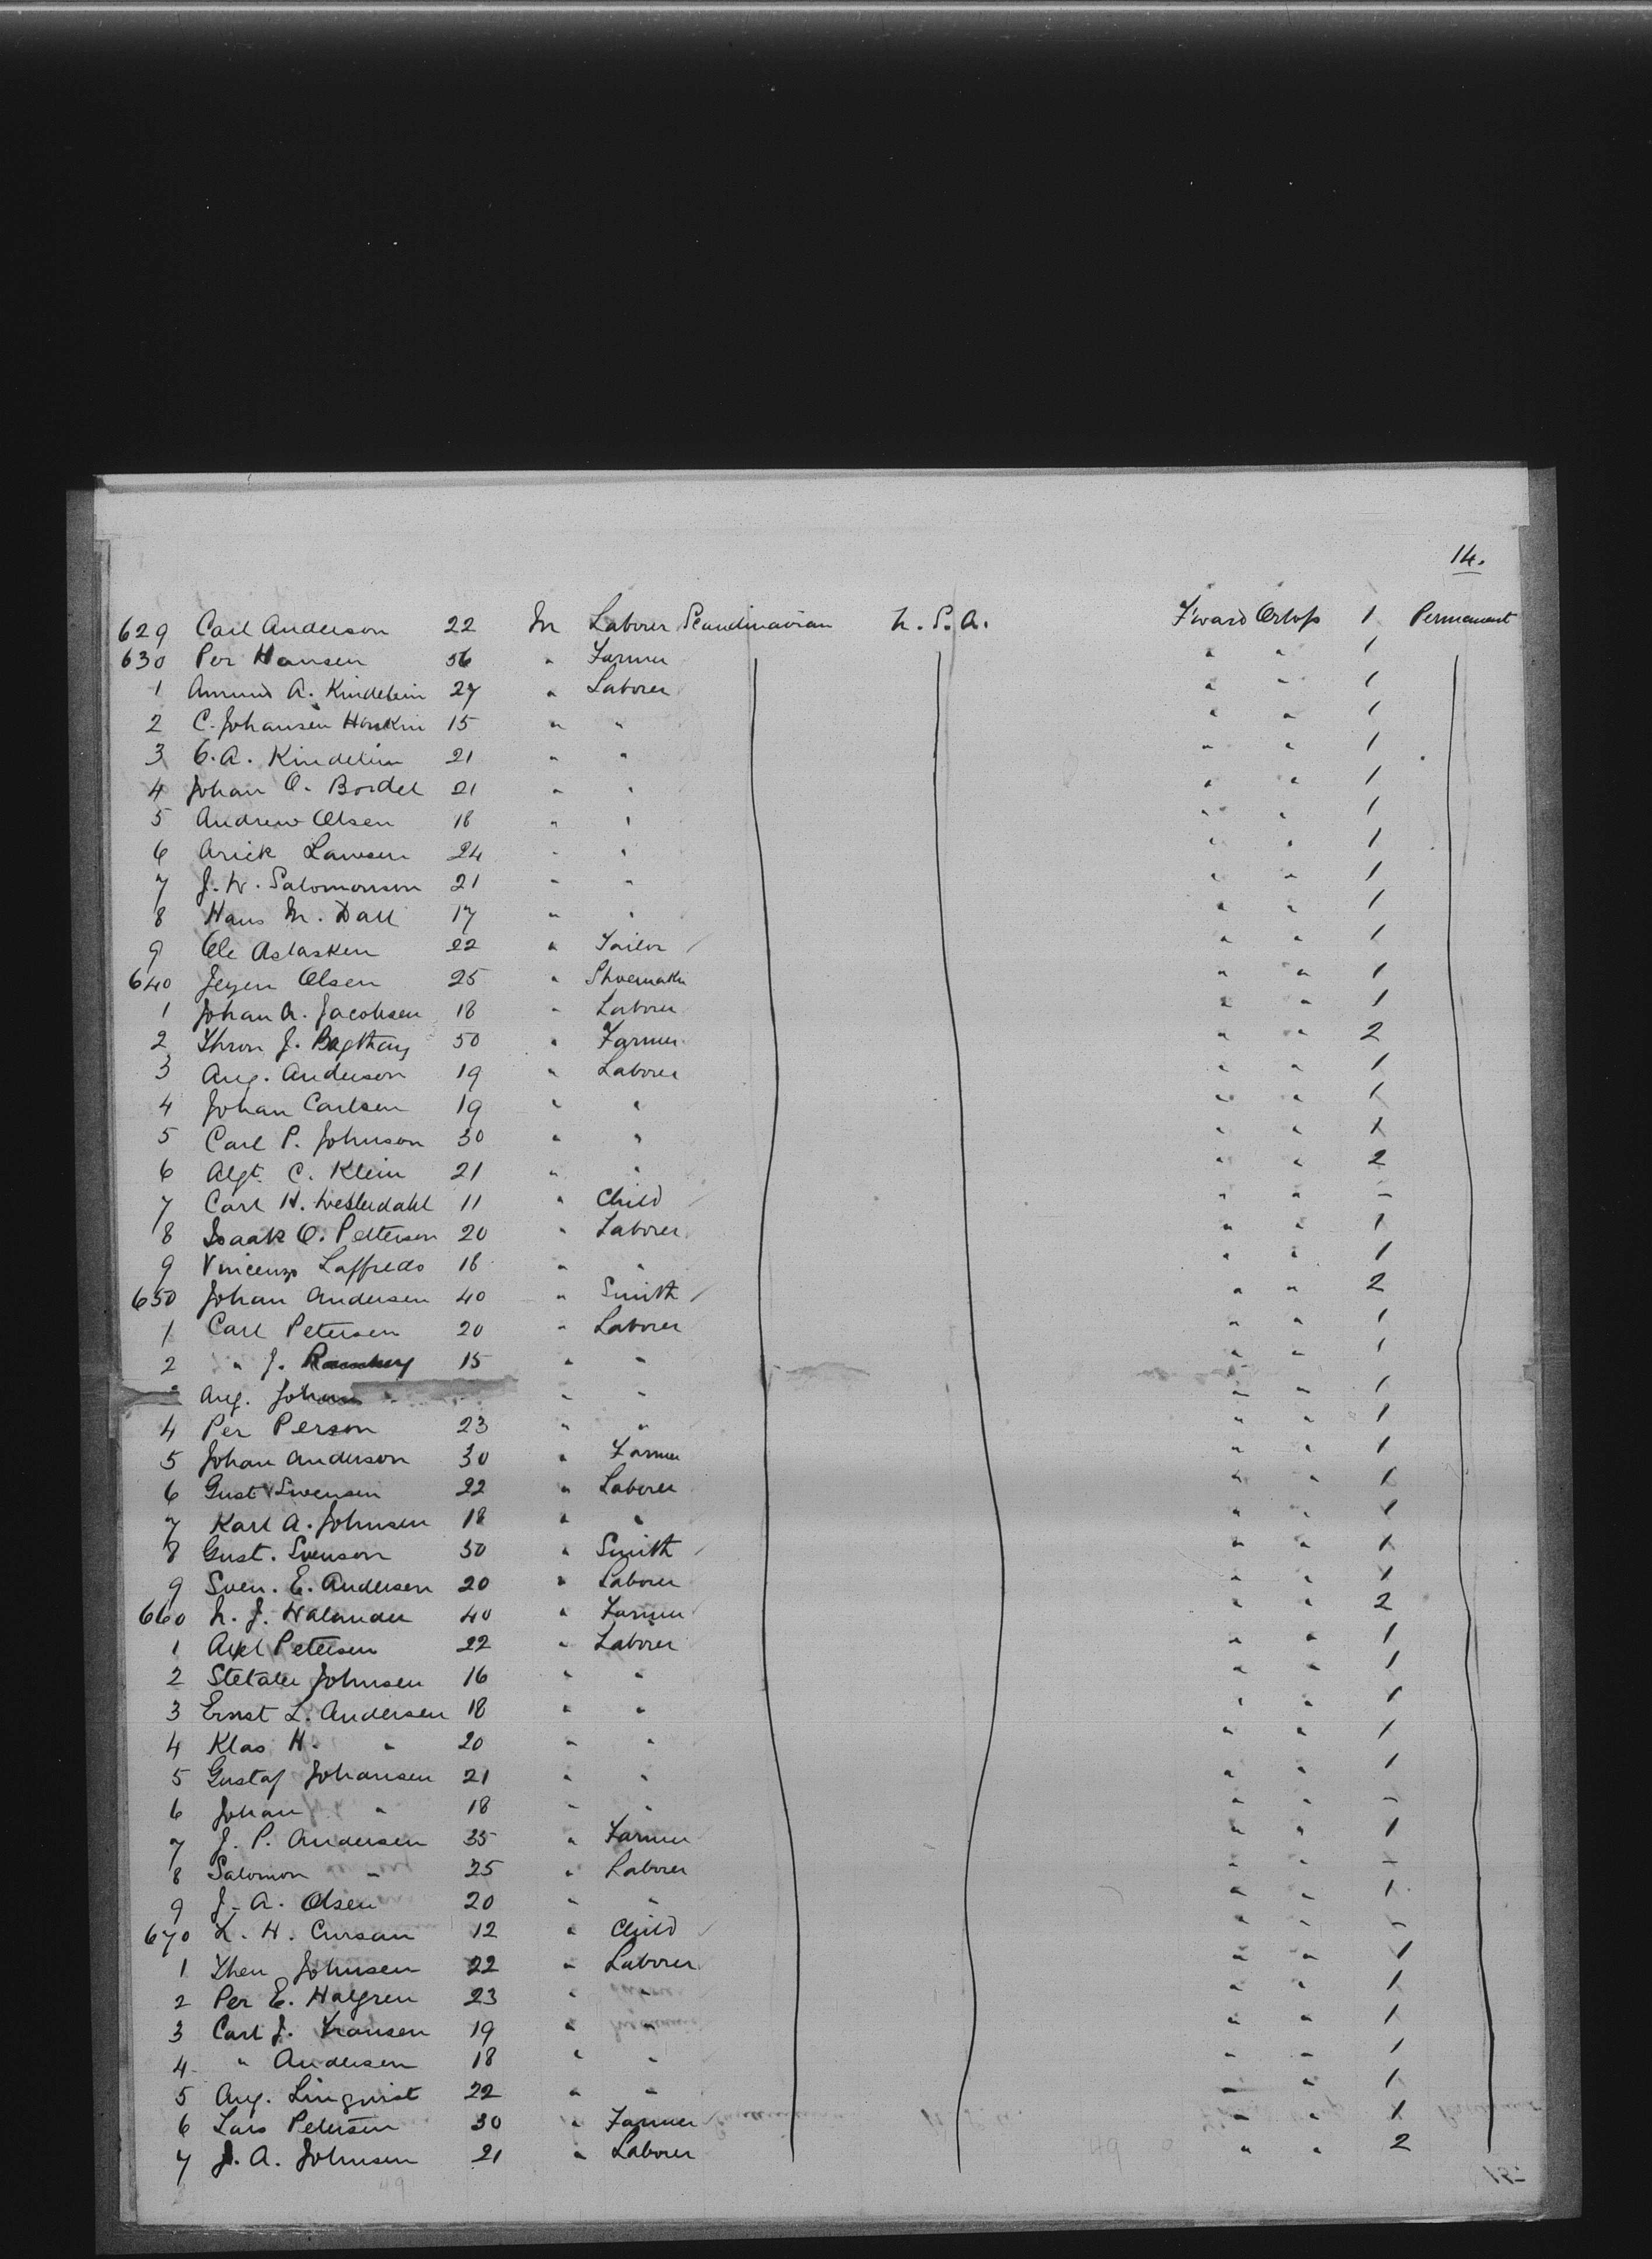 14.
629 Carl Anderson 22 M Laborer Scandinavian U.S.A. F'ward Orlop 1 Permanent
630 Per Hansen 56 " Farmer " " 1
1 Amund A. Kindelein 27 " Laborer " " 1
2 C. Johansen 15 " " " " 1
3 A. Kindelein 21 " " " " 1
4 Johan O. Bordel 21 " " " " 1
5 Andrew Olsen 18 " " " " 1
6 Arick Lawsen 24 " " " " 1
7 J. W. Salomonson 21 " " " " 1
8 Hans M. Dall 17 " " " " 1
9 Ole Aslasken 22 " " " 1
640 Jeyen Olsen 25 " Shoemaker " " 1
1 Johan A. Jacobsen 18 " Laborer " " 1
2 J. 50 " Farmer " " 2
3 Aug. Anderson 19 " Laborer " " 1
4 Johan Carlsen 19 " " " " 1
5 Carl P. Johnson 30 " " " " 1
6 Algt. C. Klein 21 " " " " 2
7 Carl H. Westerdahl 11 " Child " " -
8 Isaak O. Petterson 20 " Laborer " " 1
9 Vincenzo Laffredo 18 " " " " 1
650 Johan Andersen 40 " Smith " " 2
1 Carl Petersen 20 " Laborer " " 1
2 " J. 15 " " " " 1
Aug. " " " " 1
4 Per Person 23 " " " " 1
5 Johan Anderson 30 " Farmer " " 1
6 Gust Swensen 22 " Laborer " " 1
7 Karl A. Johnsen 18 " " " " 1
8 Gust. Svenson 30 " Smith " " 1
9 Sven. E. Andersen 20 " Laborer " " 1
660 J. Walander 40 " Farmer " " 2
1 Axel Petersen 22 " Laborer " " 1
2 Johnsen 16 " " " " 1
3 Ernst L. Andersen 18 " " " " 1
4 Klas H. " 20 " " " " 1
5 Gustaf Johansen 21 " " " " 1
6 Johan " 18 " " " " -
7 J. P. Andersen 35 " Farmer " " 1
8 Salomon " 25 " Laborer " " -
9 J. A. Olsen 20 " " " " 1
670 L. H. Cursan 12 " Child " " -
1 Then Johnsen 22 " Laborer " " 1
2 Per E. Halgren 23 " " " " 1
3 Carl J. Fransen 19 " " " " 1
4 " Andersen 18 " " " " 1
5 Aug. Linqvist 22 " " " " 1
6 Lars Petersen 30 " Farmer " " 1
7 J. A. Johnsen 21 " Laborer " " 2